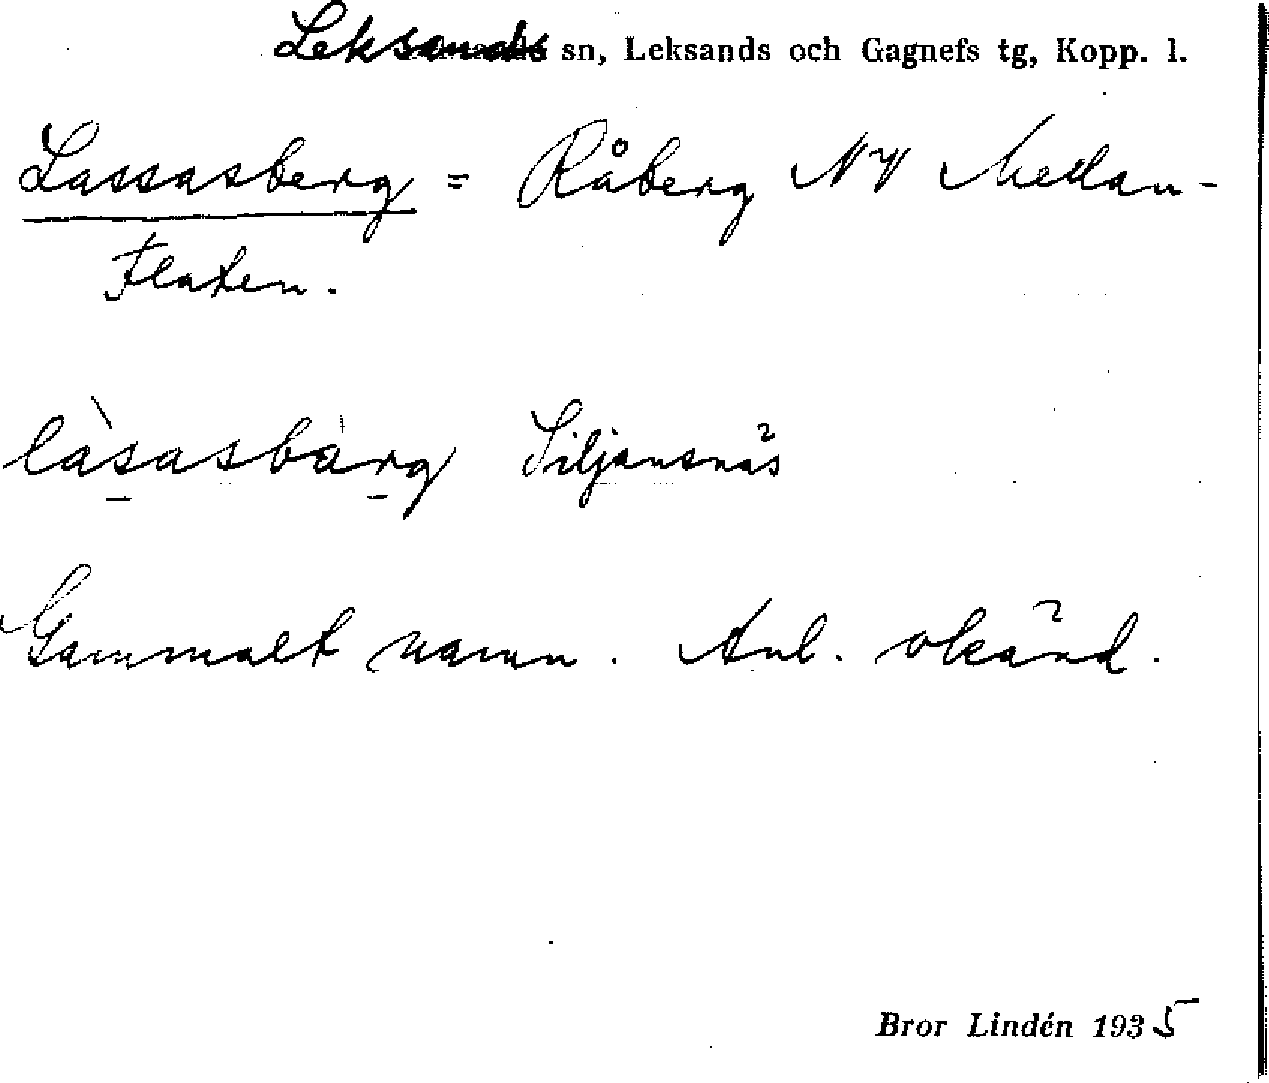 Leksands sn, Leksands och Gagnefs tg, Kopp. l.
Lassasberg = Råberg NV Mellan-
Flaten.
làsasbàrg Siljansnäs
Gammalt namn. Anl. okänd.
Bror Lindén 1935